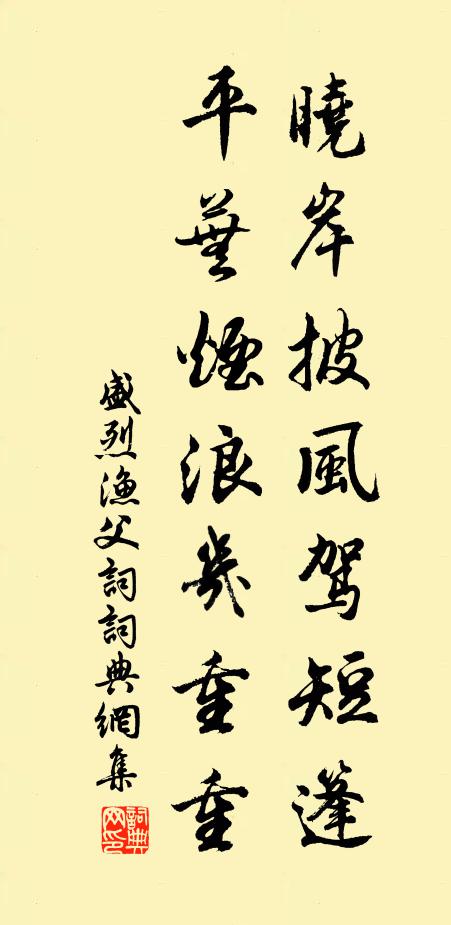 曉岸披風駕短篷
平蕪煙浪幾重重
盛烈漁父詞詞典網集
詞典網印